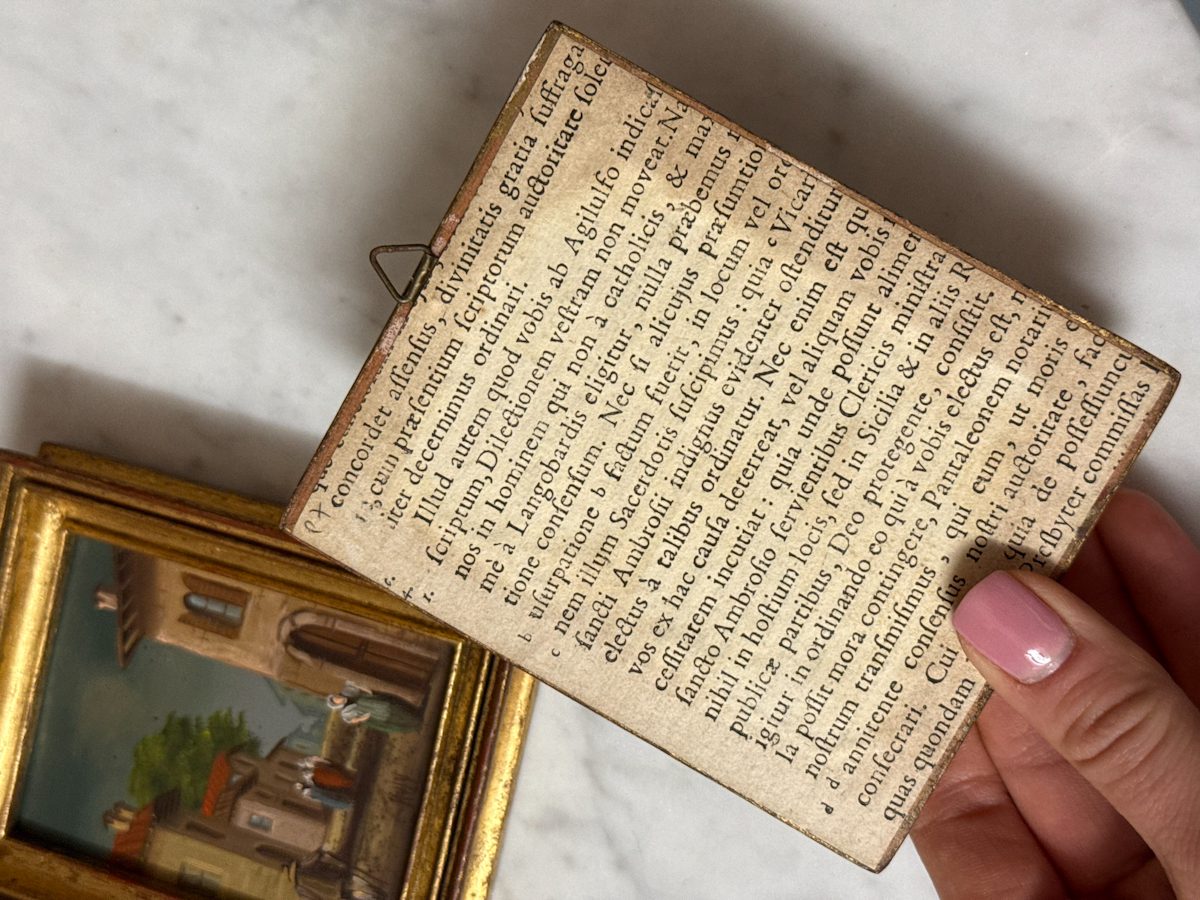 concordet aſſenſus, divinitatis gratia ſuffraga
cum præſentium ſcriptorum auctoritate
iter decernimus ordinari.
Illud autem quod vobis ab Agilulfo indicaſ
ſcriptum, Dilectionem veſtram non moveat. Na
nos in hominem qui non à catholicis, & max
mè à Langobardis eligitur, nulla præbemus r
tione conſenſum. Nec ſi alicujus præſumtio
b uſurpatione b factum fuerit, in locum vel ord
c nem illum Sacerdotis ſuſcipimus : quia c Vicari
ſancti Ambroſii indignus evidenter oſtenditur
electus à talibus ordinatur. Nec enim eſt qu
vos ex hac cauſa deterreat, vel aliquam vobis
ceſſitatem incutiat : quia unde poſſunt alimen
ſancto Ambroſio ſervientibus Clericis miniſtra
nihil in hoſtium locis, ſed in Sicilia & in aliis R
publicæ partibus, Deo protegente, conſiſtit.
Igitur in ordinando eo qui à vobis electus eſt, n
la poſſit mora contingere, Pantaleonem notari
noſtrum tranſmiſimus, qui eum, ut moris e
d d annitente conſenſus noſtri auctoritate, fac
conſecrari. Cui quia de poſſeſſiunc
quas quondam Presbyter commiſſas